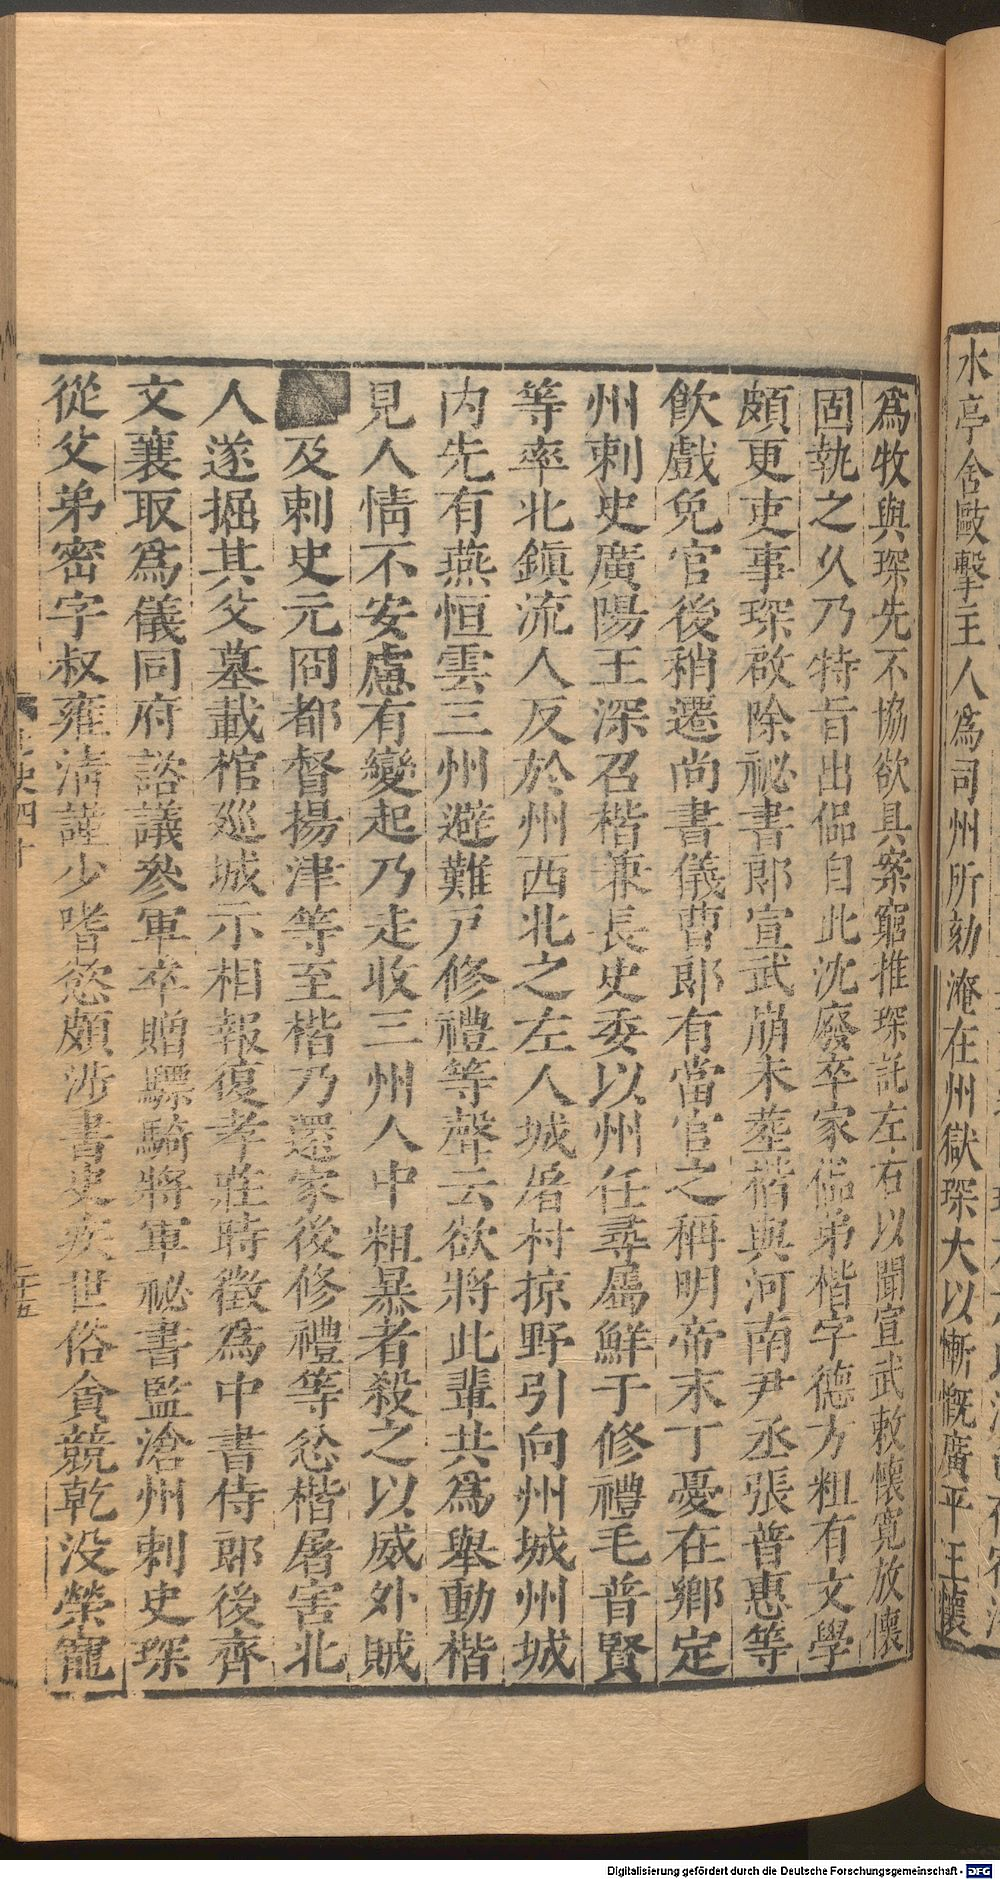 水亭舍毆擊主人爲司州所劾淹在州獄琛大以慚慨廣平王懷
爲牧與琛先不協欲具案窮推琛託左右以聞宣武敕懷寬放懷
固執之久乃特旨出偘自此沈廢卒家偘弟楷字德方粗有文學
頗更吏事琛啟除祕書郎宣武崩未葬楷與河南尹丞張普惠等
飲戲免官後稍遷尚書儀曹郎有當官之稱明帝末丁憂在鄉定
州刺史廣陽王深召楷兼長史委以州任尋屬鮮于修禮毛普賢
等率北鎮流人反於州西北之左人城屠村掠野引向州城州城
内先有燕恒雲三州避難戸修禮等聲云欲將此輩共爲舉動楷
見人情不安慮有變起乃走收三州人中粗暴者殺之以威外賊
及刺史元冏都督揚津等至楷乃還家後修禮等忿楷屠害北
人遂掘其父墓載棺巡城示相報復孝莊時徵爲中書侍郎後齊
文襄取爲儀同府諮議參軍卒贈驃騎將軍祕書監滄州刺史琛
從父弟密字叔雍清謹少嗜慾頗涉書史疾世俗貪競乾没榮寵
史四十
二十五
Digitalisierung gefördert durch die Deutsche Forschungsgemeinschaft - DFG